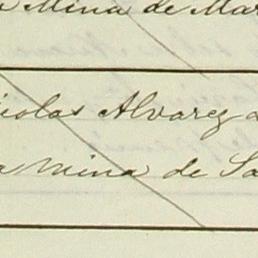 Mina de Mar
icolas Alvarez
a Mina de Sa